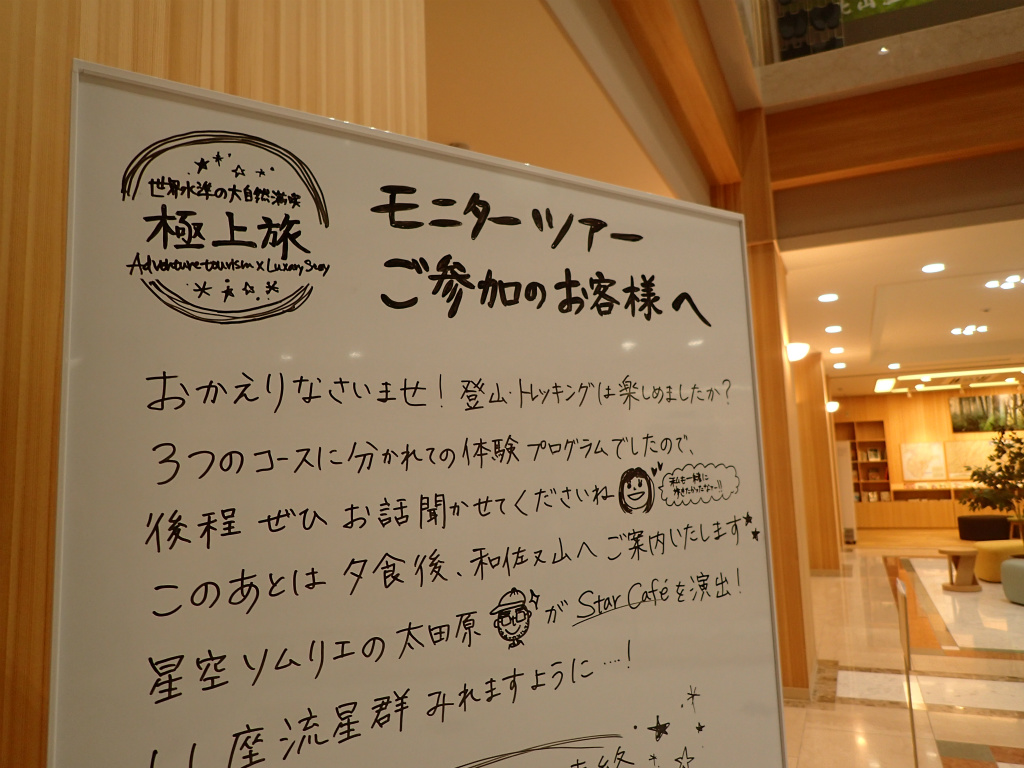 世界水準の大自然満喫
極上旅
Adventure tourism x Luxury Stay
モニターツアー
ご参加のお客様へ
おかえりなさいませ！登山・トレッキングは楽しめましたか？
3つのコースに分かれての体験プログラムでしたので、
後程 ぜひ お話聞かせてくださいね
私も一緒に
歩きたかったなァー!!
このあとは 夕食後、和佐又山へ ご案内いたします
星空ソムリエの太田原 が Star Caféを演出！
しし座流星群 みれますように…！